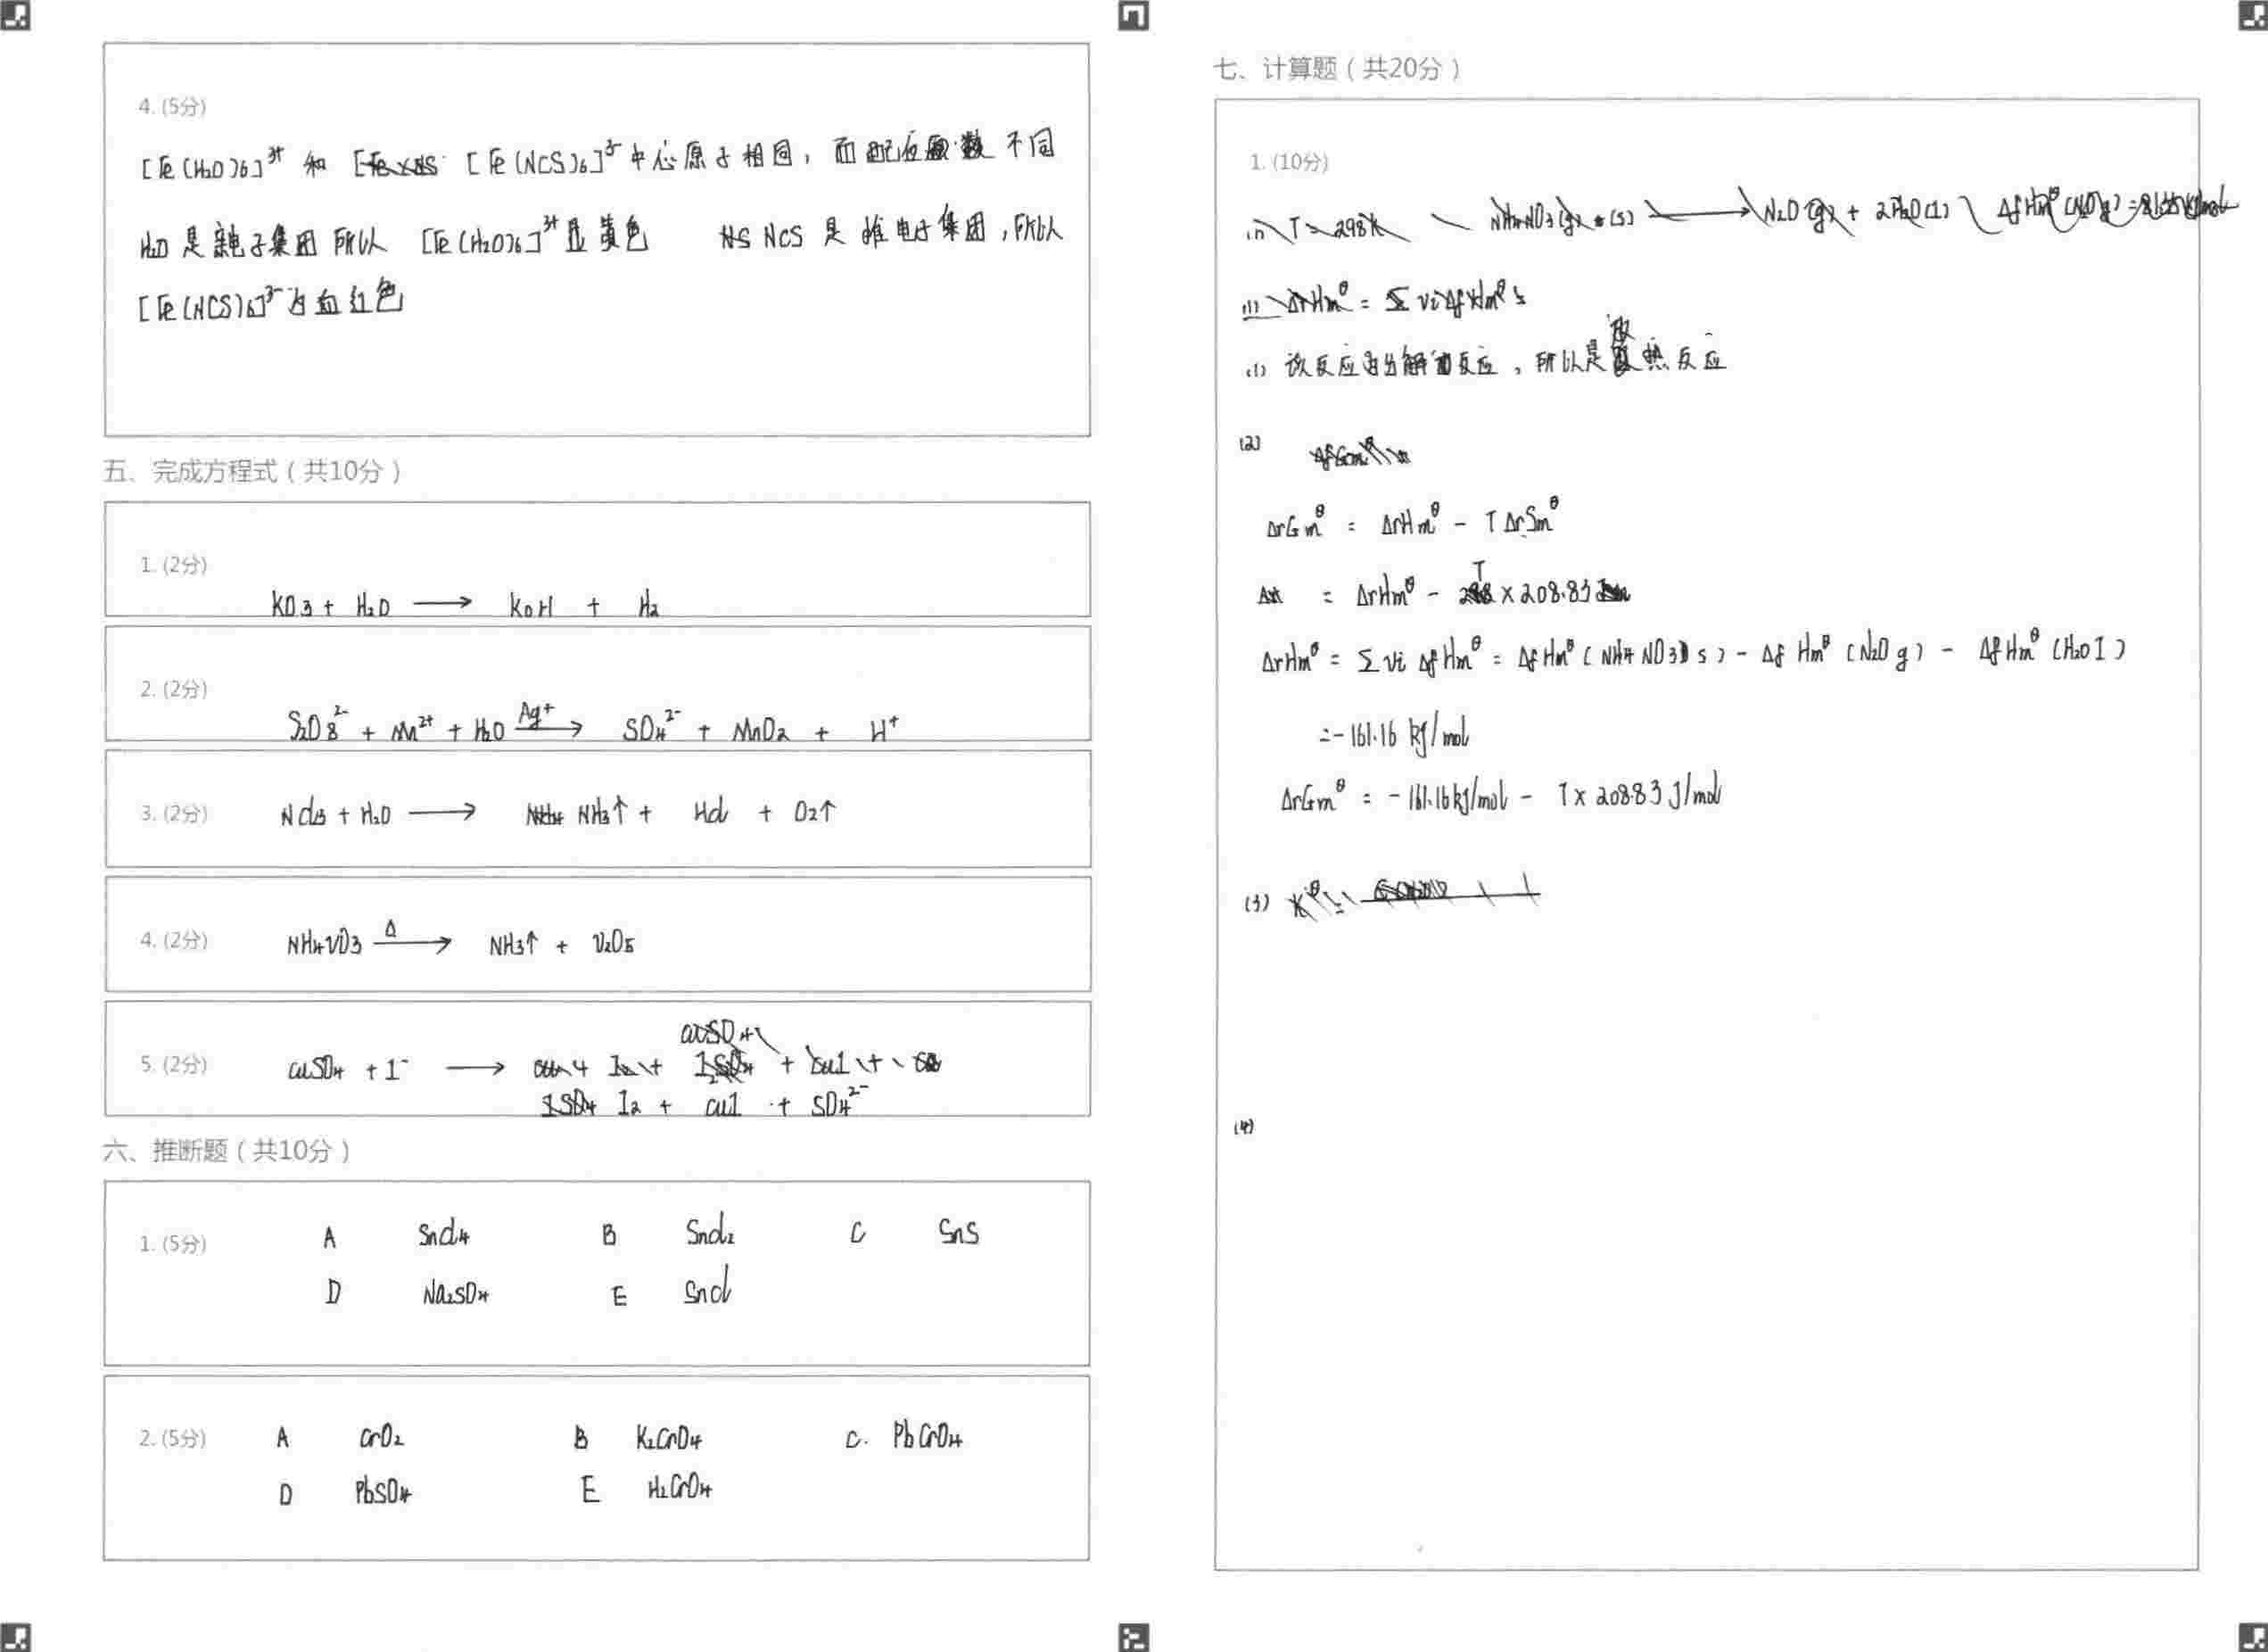 4. (5分)
[Fe(H₂O)₆]³⁺ 和 [Fe(NCS)₆]³⁻中心原子相同，而配位数不同
H₂O 是亲电子集团 所以 [Fe(H₂O)₆]³⁺显黄色 NCS 是推电子集团，所以
[Fe(NCS)₆]³⁻为血红色
五、完成方程式（共10分）
1. (2分)
KO₃ + H₂O ⟶ KOH + H₂
2. (2分)
S₂O₈²⁻ + Mn²⁺ + H₂O —Ag⁺→ SO₄²⁻ + MnO₂ + H⁺
3. (2分) NCl₃ + H₂O ⟶ NH₃↑ + HCl + O₂↑
4. (2分) NH₄VO₃ —Δ→ NH₃↑ + V₂O₅
5. (2分) CuSO₄ + I⁻ ⟶
I₂ + CuI + SO₄²⁻
六、推断题（共10分）
1. (5分) A SnCl₄ B SnCl₂ C SnS
D Na₂SO₄ E SnCl
2. (5分) A CrO₂ B K₂CrO₄ C. PbCrO₄
D PbSO₄ E H₂CrO₄
七、计算题（共20分）
1. (10分)
(1) T = 298K NH₄NO₃ (s) ⟶ N₂O(g) + 2H₂O(l)
(1) ΔrHm^θ = Σ νi ΔfHm^θ
(1) 该反应为分解反应，所以是放热反应
(2)
ΔrGm^θ = ΔrHm^θ - TΔrSm^θ
= ΔrHm^θ - T × 208.83
ΔrHm^θ = Σ νi ΔfHm^θ = ΔfHm^θ (NH₄NO₃ s) - ΔfHm^θ (N₂O g) - ΔfHm^θ (H₂O l)
= -161.16 kJ/mol
ΔrGm^θ = -161.16 kJ/mol - T × 208.83 J/mol
(3) K^θ =
(4)